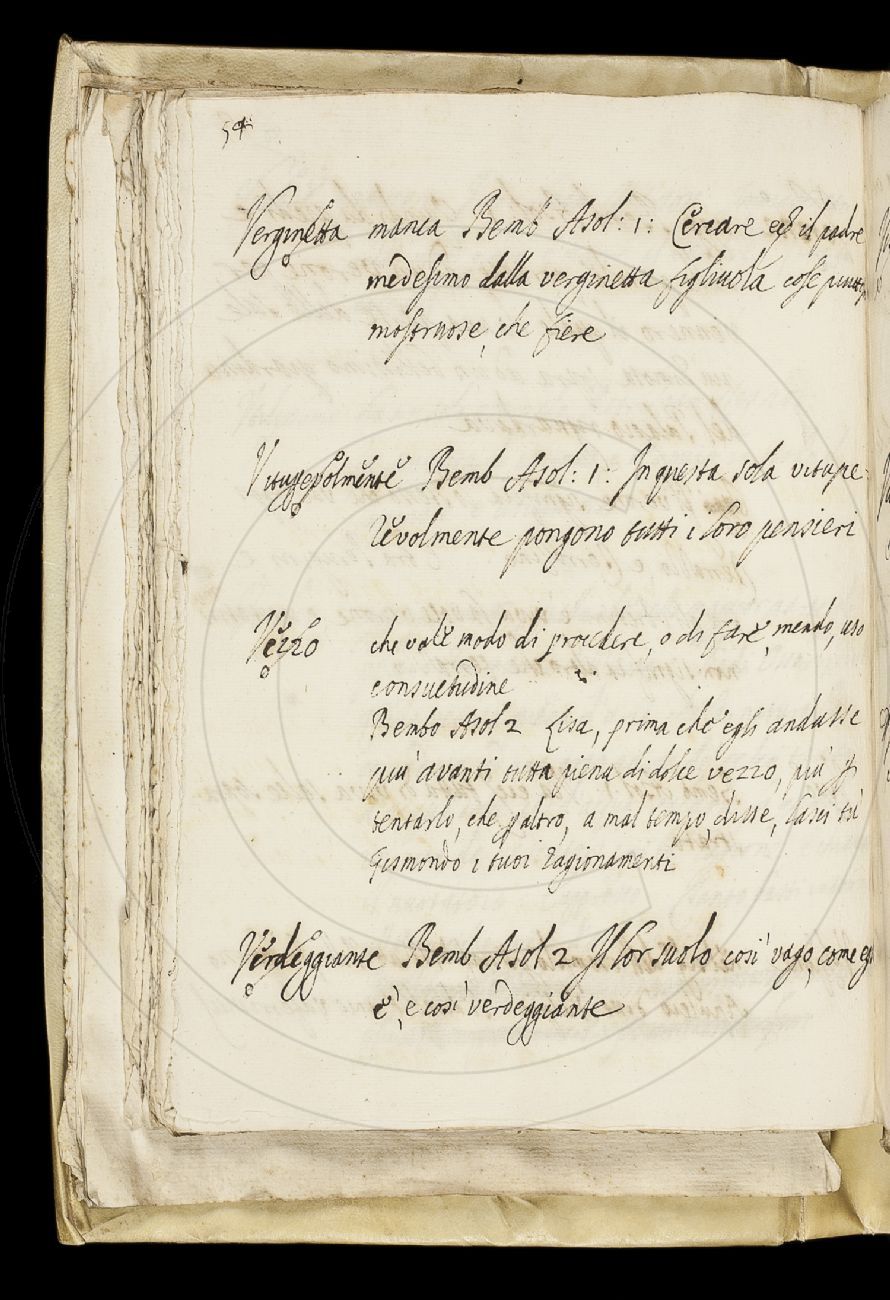 54
Verginetta manca Bemb Asol: 1: Cercare egli il padre
medesimo dalla verginetta figliuola cose piutto
mostruose, che fiere
Vituperolmente Bemb Asol: 1: In questa sola vitupe
revolmente pongono tutti i loro pensieri
Vezzo che vale modo di procedere, o di fare, mendo, uso
consuetudine
Bembo Asol 2 Lisa, prima che egli andasse
piu avanti tutta piena di dolce vezzo, piu p
tentarlo, che p altro, a mal tempo, disse, lasci tu
Gismondo i tuoi ragionamenti
Verdeggiante Bemb Asol 2 Il lor suolo cosi vago, come egli
è, e cosi verdeggiante